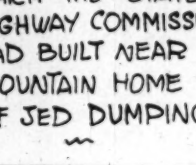 GHWAY COMMISS
AD BUILT NEAR
OUNTAIN HOME
F JED DUMPING